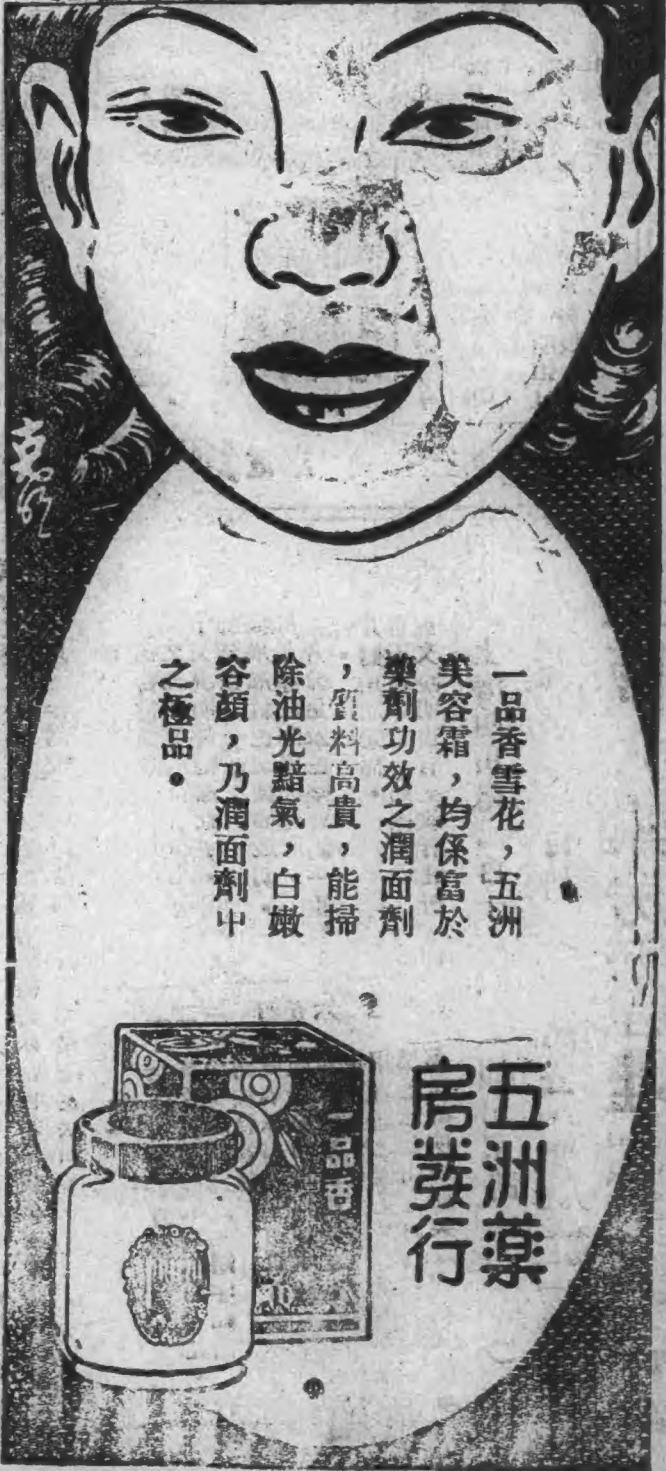 一品香雪花，五洲
美容霜，均係富於
藥劑功效之潤面劑
，質料高貴，能掃
除油光黯氣，白嫩
容顏，乃潤面劑中
之極品。
五洲藥
房發行
一品香